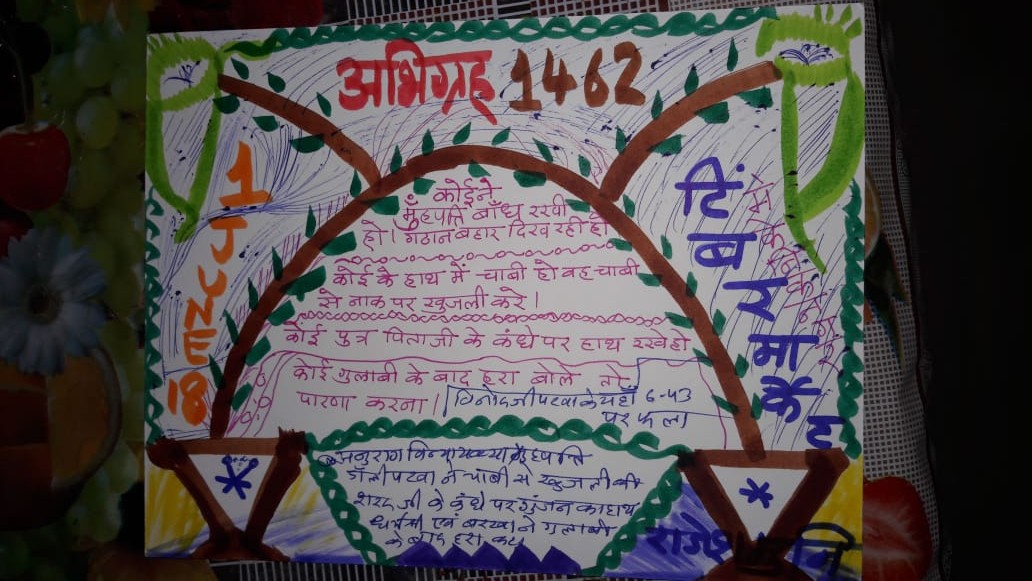 अभिग्रह 1462
कोईने
मुँहपत्ति बाँध रखी
हो। गठान बहार दिख रही हो
कोई के हाथ में चाबी हो वह चाबी
से नाक पर खुजली करे।
कोई पुत्र पिताजी के कंधे पर हाथ रखे हो
कोई गुलाबी के बाद हरा बोले तो
पारणा करना।
विनोदजी पटवा के यहाँ 6-43
पर फला
अनुराग
डॉली पटवा ने चाबी से खुजली की
शरद जी के कंधे पर गुंजन का हाथ
एवं बरखा ने गुलाबी
के बाद हरा कहा
टिंबर मार्केट
राजेश मुनि